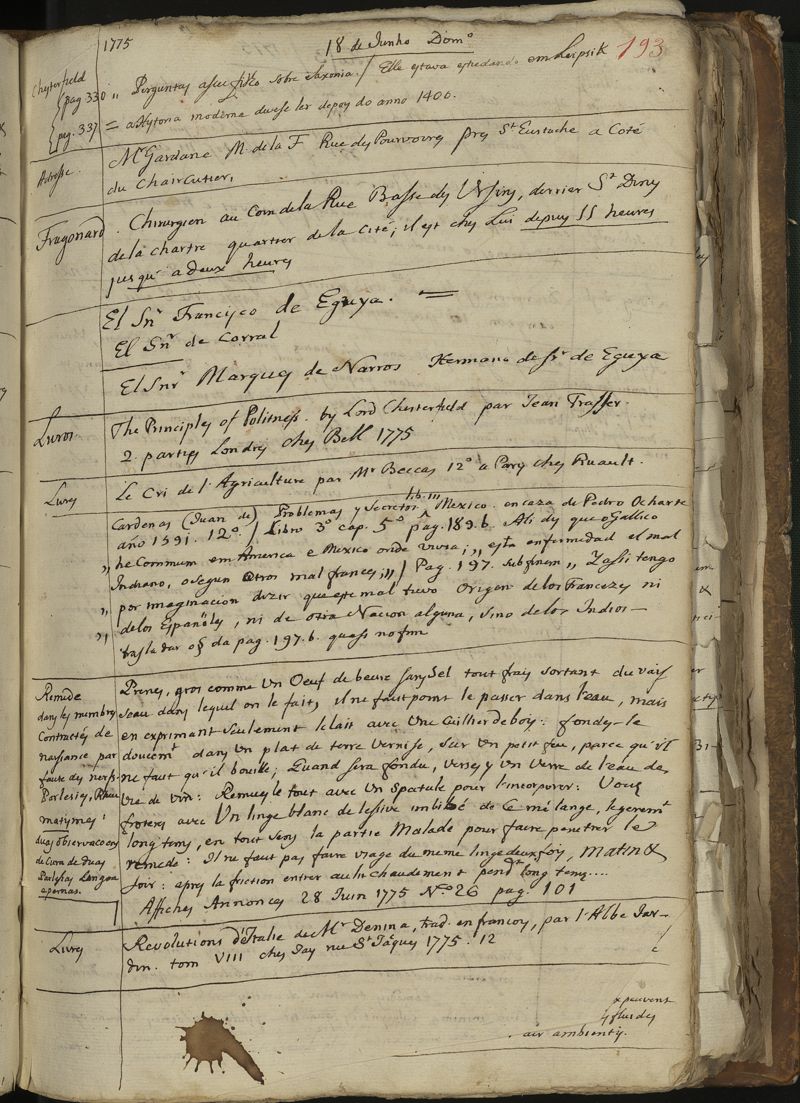 1775
18 de Junho Domº
193
Chesterfield
{pag 330 „ Perguntas a seu filho sobre Saxonia / Elle estava estudando em Leipsik
{pag. 337 = a Hytoria moderna deve se ler depoy do anno 1400.
Adresse.
Mr Gardane M. de la F Rue dey Pourvoirs prez St Eustache a Coté
du Chaircutier,
Fragonard. Chirurgien au Coin de la Rue Basse des Ursins, derrier St Deny
de la Chartre quartier de la Cité; il est chez Lui depuys 11 heures
jusqu'a deux heures
El Snr Francisco de Eguya. =
El Snr de Corral
El Snr Marquez de Narros Hermano de Sr de Eguya
Livros
The Principles of Politness. by Lord Chesterfield par Jean Trusler.
2. parties Londres chez Bell 1775
Livres
Le Cri de l'Agriculture par Mr Beccas 12º a Pary chez Ruault.
Cardenas (Juan de) Problemas y Secretos lib. III Mexico. en caza de Pedro Ocharte
año 1591. 12º. / Libro 3º cap. 5º pag. 189.b Ali dis que o Gallico
„ he Commum em America e Mexico onde vivia; „ esta enfermedad el mal
Indiano, o segun otros mal frances, „ / Pag. 197. sub finem „ Y assi tengo
„ por imaginacion dizir que este mal tuvo origen de los Francezes ni
„ de los Españoles, ni de otra Nacion alguna, sino de los Indios —
trasladar o § da pag. 197.b. quasi no fim
Remède
dans les membres
Contractés de
naissance par
faute des nerfs
Parlesies, Rheu
matismes:
duas observacoens
de Cura de duas
Parlesias Longas
apernas.
Prenez, gros comme Un Oeuf de beure sans Sel tout frais sortant du vais
seau dans lequel on le fait, il ne faut point le passer dans l'eau, mais
en exprimant seulement le lait avec Une Cuillier de bois: fondez-le
doucemt dans Un plat de terre Vernisse, sur Un petit feu, parce qu'il
ne faut qu'il bouille; Quand sera fondu, versez y Un Verre de l'eau de
vie de vin: Remuez le tout avec Un Spatule pour l'incorporer: Vous
froterez avec Un linge blanc de lessive imbibé de Ce mélange, legeremt
long tems, en tout sens la partie Malade pour faire penetrer le
remede: Il ne faut pas faire usage du meme linge deux fois, matin &
soir: apres la friction entrer au lit chaudement pendt long tems....
Affiches Annonces 28 Juin 1775 Nº 26 pag. 101
Livres
Revolutions d'Italie de Mr Denina, trad. en francois, par l'Abbe Jar-
din. tom VIII chez Jay rue St Jaques 1775. 12
x peuvent
fluides
air ambiente.